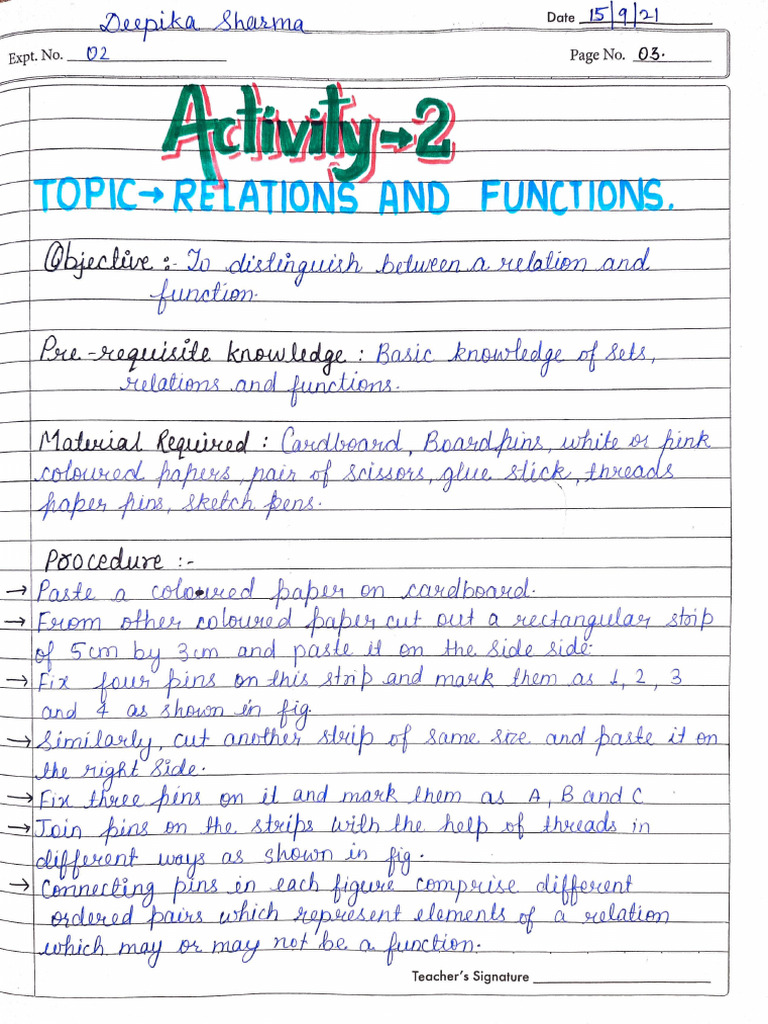 Deepika Sharma
Date 15/9/21
Expt. No. 02
Page No. 03.
Activity→2
TOPIC→RELATIONS AND FUNCTIONS.
Objective :- To distinguish between a relation and
function.
Pre-requisite knowledge : Basic knowledge of sets,
relations and functions.
Material Required : Cardboard, Board pins, white or pink
coloured papers, pair of scissors, glue stick, threads
paper pins, sketch pens.
Procedure :-
→ Paste a coloured paper on cardboard.
→ From other coloured paper cut out a rectangular strip
of 5cm by 3cm and paste it on the side side.
→ Fix four pins on this strip and mark them as 1, 2, 3
and 4 as shown in fig.
→ Similarly, cut another strip of same size and paste it on
the right side.
→ Fix three pins on it and mark them as A, B and C
→ Join pins on the strips with the help of threads in
different ways as shown in fig.
→ Connecting pins in each figure comprise different
ordered pairs which represent elements of a relation
which may or may not be a function.
Teacher's Signature